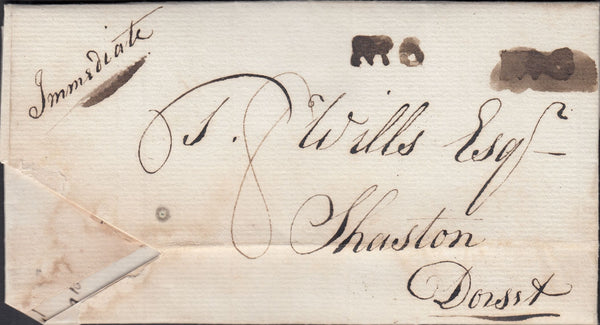 Immediate
T. Wills Esqr
8
Shaston
Dorset